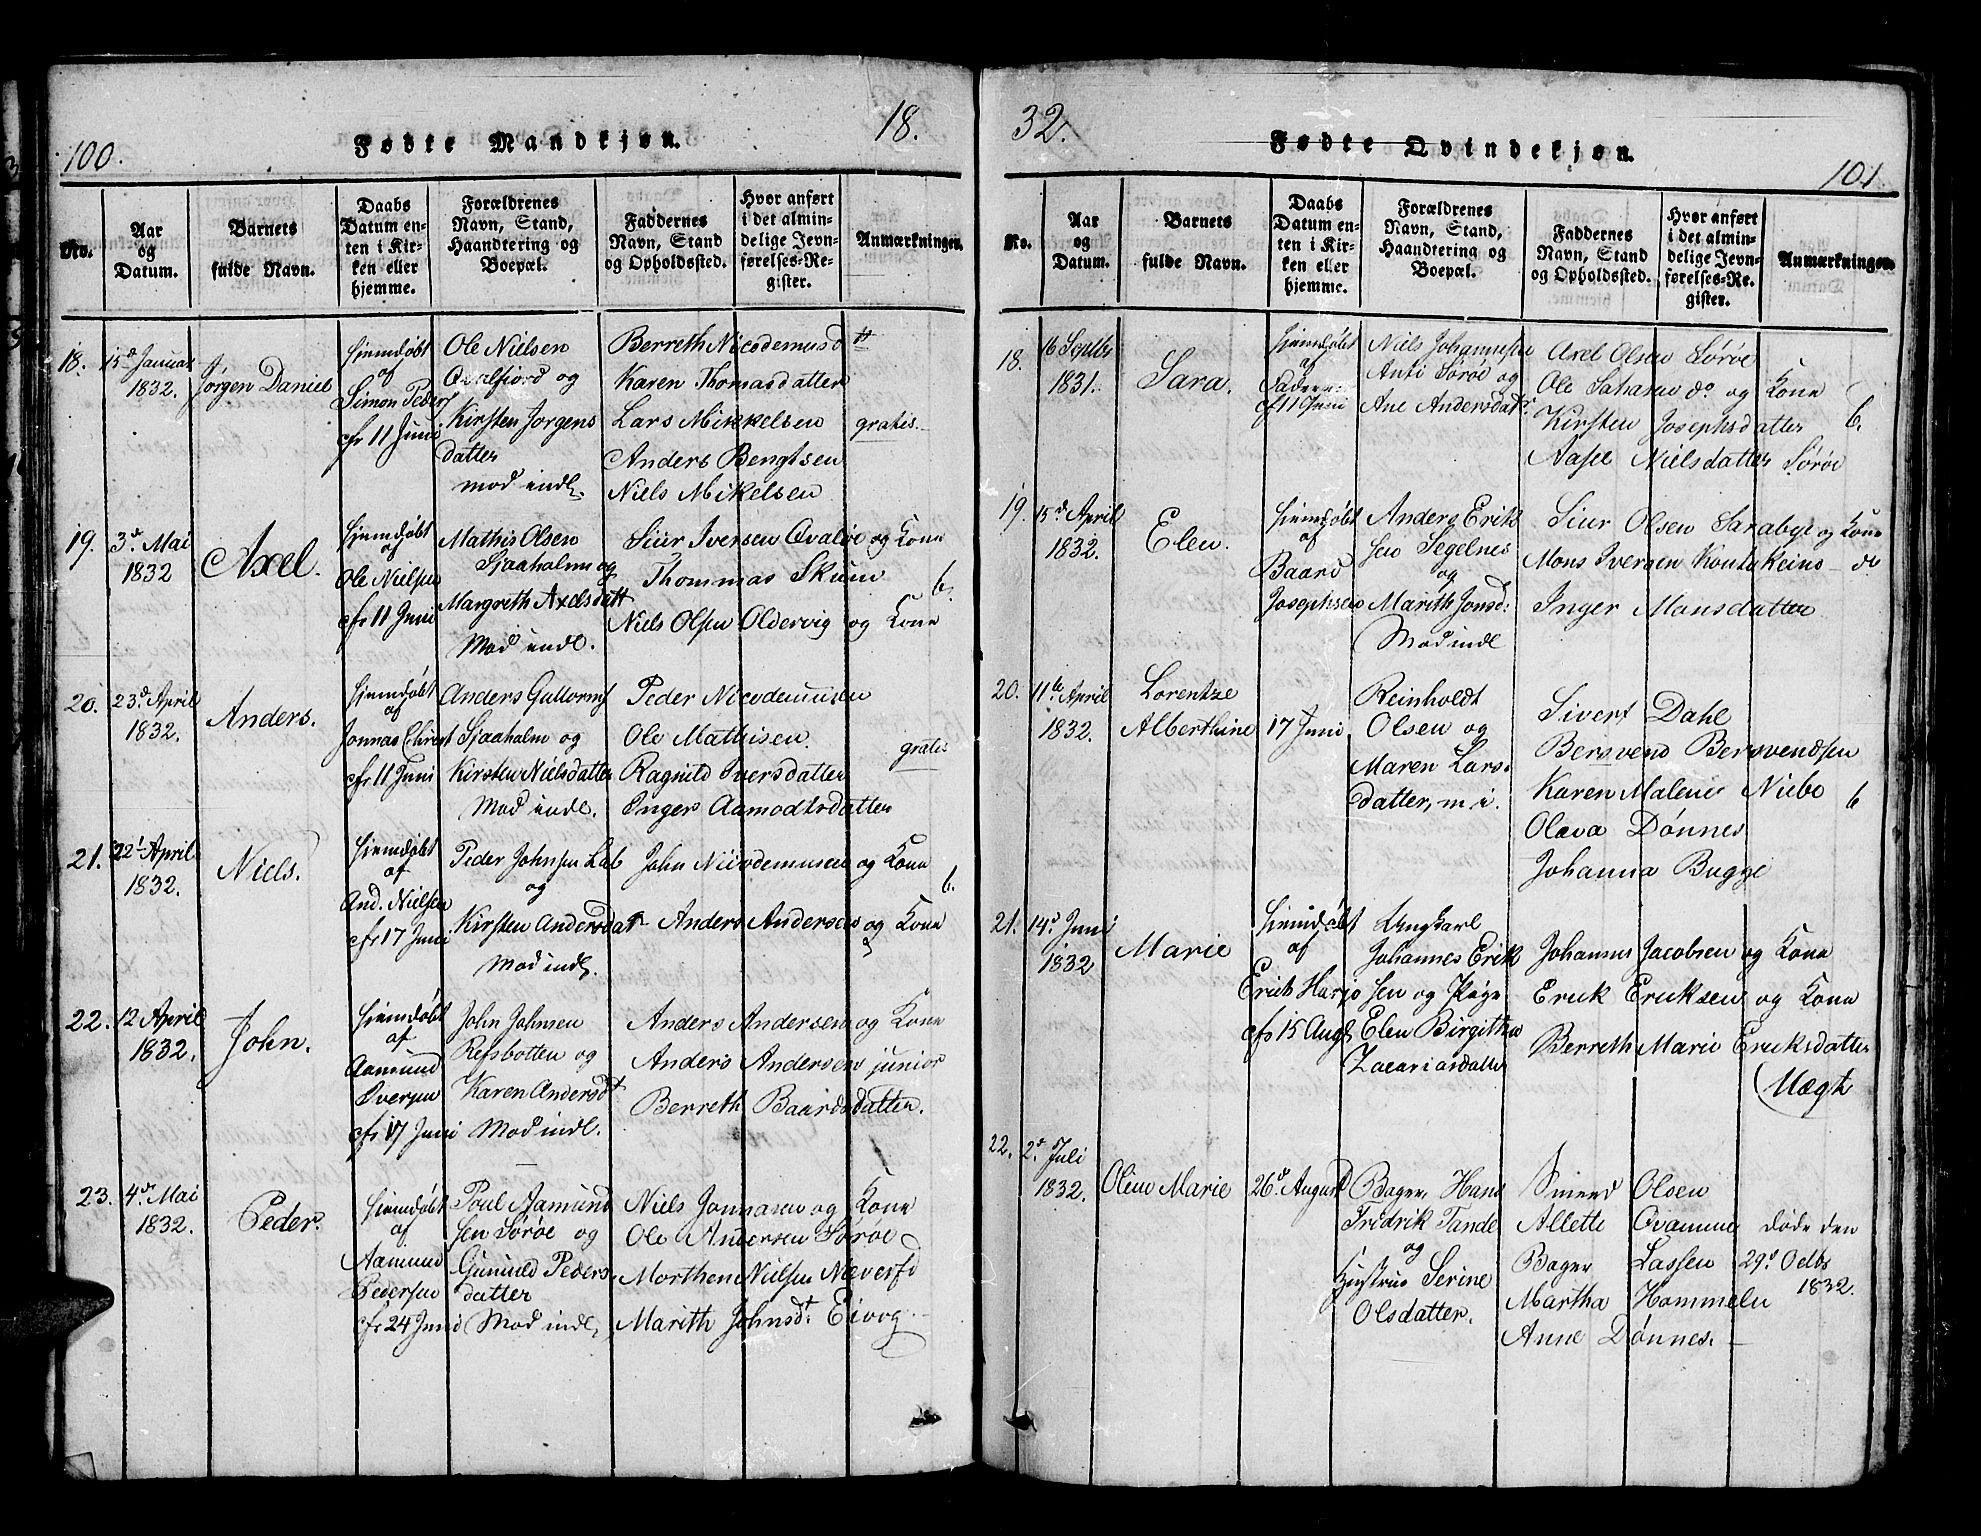 100.
Fødte Mandkjøn.
18.
No.
Aar
og
Datum.
Barnets
fulde Navn.
Daabs
Datum en-
ten i Kir-
ken eller
hjemme.
Forældrenes
Navn, Stand,
Haandtering og
Boepæl.
Faddernes
Navn, Stand
og Opholdssted.
Hvor anført
i det almin-
delige Jevn-
førelses-Re-
gister.
Anmærkninger.
18.
15d Januar
1832.
Jørgen Daniel
Hiemdøbt
af
Simon Peders
cfr 11 Juni
Ole Nielsen
Qvalfiord og
Kirsten Jørgens
datter
mod indl.
Berreth Nicodemusdtr
Karen Thomasdatter
Lars Mikkelsen
Anders Bengtsen
Niels Mikelsen
gratis.
19.
3d Mai
1832
Axel.
Hiemdøbt
af
Ole Nielsen
cfr 11 Juni
Mathis Olsen
Sjaaholm og
Margreth Axelsdatt
Mod indl.
Siur Iversen Qvaløe og Kone
Thommas Skum
Niels Olsen Oldervig og Kone
6.
20.
23d April
1832.
Anders.
Hiemdøbt
af
Jonnas Christ
cfr 11 Juni
Anders Guttorms
Sjaaholm og
Kirsten Nielsdatter
Mod indl.
Peder Nicodemusen
Ole Mathisen.
Ragnild Iversdatter
Ingers Aamodtsdatter
gratis
21.
22d April
1832.
Niels.
Hiemdøbt
af
And. Nielsen
cfr 17 Juni
Peder Johnsen Lab
og
Kirsten Andersdat
Mod indl.
John Nicodemusen og Kone
Anders Andersen og Kone
6.
22.
12 April
1832.
John.
Hiemdøbt
af
Aamund
Iversen
cfr 17 Juni
John Johnsen
Refsbotten og
Karen Andersdt
Mod indl.
Anders Andersen og Kone
Anders Andersen junior
Berreth Baardsdatter.
23.
4de Mai
1832.
Peder.
Hiemdøbt
af
Aamund
Pedersen
cfr 24 Juni
Poul Aamund
sen Sørøe og
Gunnild Peders
datter
Mod indl.
Niels Jonnasen og Kone
Ole Andersen Sørøe
Morthen Nielsen Næverfd
Marith Johnsdt. Eivog
32.
Fødte Qvindekjøn.
101
No.
Aar
og
Datum.
Barnets
fulde Navn.
Daabs
Datum en-
ten i Kir-
ken eller
hjemme.
Forældrenes
Navn, Stand,
Haandtering og
Boepæl.
Faddernes
Navn, Stand
og Opholdssted.
Hvor anført
i det almin-
delige Jevn-
førelses-Re-
gister.
Anmærkninger.
18.
16 Septbr
1831.
Sara.
Hiemdøbt
af
Faderen
cfr 11 Juni
Niels Johannesen
Anti Sørøe og
Ane Andersdatr
Axel Olsen Sørøe
Ole Saharan do og Kone
Kirsten Josephsdatter
Aase Nielsdatter Sørøe
6.
19.
15d April
1832.
Elen.
Hiemdøbt
af
Baard
Josephsen
Anders Erik
sen Segelnes
og
Marith Jonsd:
Mod indl
Siur Olsen Sarabye og Kone
Mons Iversen Koutokeino do
Inger Monsdatter
20.
11te April
1832.
Lorentze
Alberthine
17 Juni
Reinholdt
Olsen og
Maren Lars-
datter, m i.
Sivert Dahl
Bersvend Bersvendsen
Karen Malene Niebe
Olava Dønnes
Johanna Bugge
6
21.
14d Juni
1832
Marie
Hiemdøbt
af
Erich Harjo
cfr 15 Augs
Ungkarl
Johannes Erik
sen og Pige
Elen Birgitha
Zacariasdatter
Johannes Jacobsen og Kone
Erick Ericksen og Kone
Berreth Marie Ericksdatter
Mægt
22.
2d Juli
1832.
Oline Marie
26d August
Bager, Hans
Fredrik Tande
og
Hustrue Serine
Olsdatter.
Smed Olsen
Allette Qvamme
Bager Lassen
Martha Hommeln
Anne Dønnes.
døde den
29d Octbr
1832.